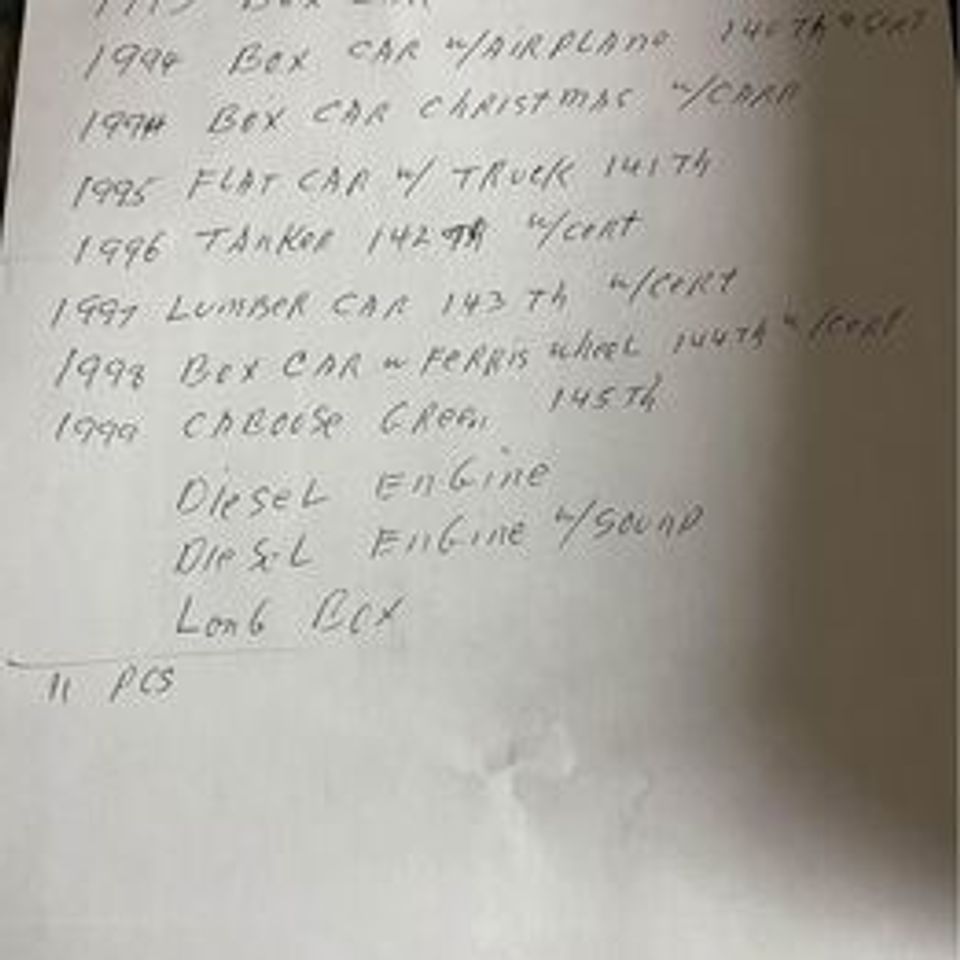 1993 BOX CAR
1994 BOX CAR w/AIRPLANE 140TH w/CERT
1994 BOX CAR CHRISTMAS w/CARR
1995 FLAT CAR w/ TRUCK 141TH
1996 TANKER 142TH w/CERT
1997 LUMBER CAR 143TH w/CERT
1998 BOX CAR w FERRIS WHEEL 144TH w/CERT
1999 CABOOSE GREEN 145TH
DIESEL ENGINE
DIESEL ENGINE w/SOUND
LONG BOX
11 PCS